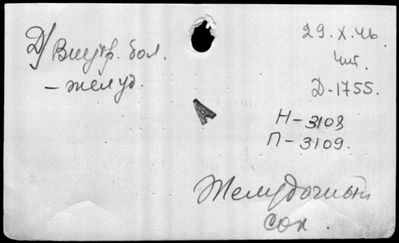 Д/ Внутр. бол.
– желуд.
29.X.46.
Чит.
Д-1755.
Н-3108
П-3109.
А
Желудочный
сок.